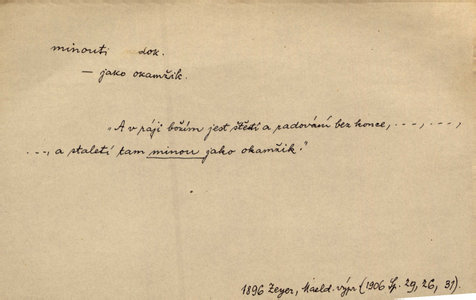 minouti dok.
— jako okamžik.
„A v ráji božím jest štěstí a radování bez konce, . – –, . – –,
. – –, a staletí tam minou jako okamžik."
1896 Zeyer, Maeld. výpr (1906 Sp. 29, 26, 31).